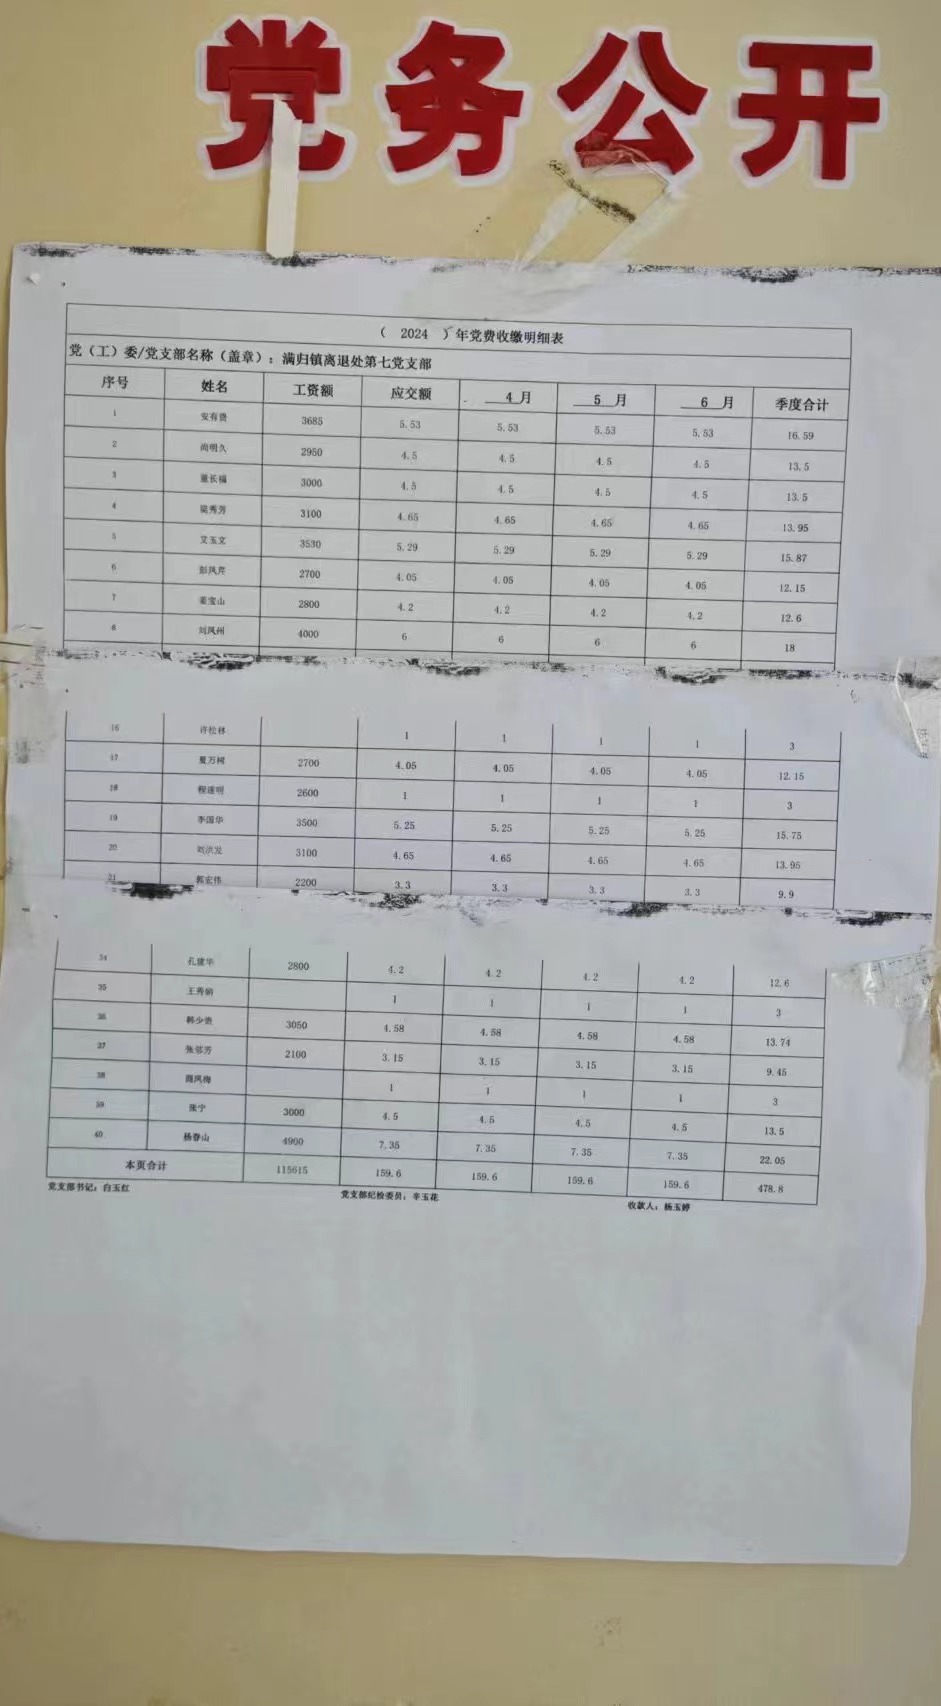 党务公开
（ 2024 ）年党费收缴明细表
党（工）委/党支部名称（盖章）：满归镇离退处第七党支部
序号 姓名 工资额 应交额 4 月 5 月 6 月 季度合计
1 安有贵 3685 5.53 5.53 5.53 5.53 16.59
2 尚明久 2950 4.5 4.5 4.5 4.5 13.5
3 董长福 3000 4.5 4.5 4.5 4.5 13.5
4 梁秀芳 3100 4.65 4.65 4.65 4.65 13.95
5 艾玉文 3530 5.29 5.29 5.29 5.29 15.87
6 彭凤芹 2700 4.05 4.05 4.05 4.05 12.15
7 姜宝山 2800 4.2 4.2 4.2 4.2 12.6
8 刘凤州 4000 6 6 6 6 18
16 许松林 1 1 1 1 3
17 夏万树 2700 4.05 4.05 4.05 4.05 12.15
18 程连明 2600 1 1 1 1 3
19 李国华 3500 5.25 5.25 5.25 5.25 15.75
20 刘洪发 3100 4.65 4.65 4.65 4.65 13.95
21 郭宏伟 2200 3.3 3.3 3.3 3.3 9.9
34 孔庆华 2800 4.2 4.2 4.2 4.2 12.6
35 王秀娟 1 1 1 1 3
36 韩少贵 3050 4.58 4.58 4.58 4.58 13.74
37 2100 3.15 3.15 3.15 3.15 9.45
38 1 1 1 1 3
39 张宁 3000 4.5 4.5 4.5 4.5 13.5
40 杨春山 4900 7.35 7.35 7.35 7.35 22.05
本页合计 115615 159.6 159.6 159.6 159.6 478.8
党支部书记：白玉红 党支部纪检委员：辛玉花 收款人：杨玉婷